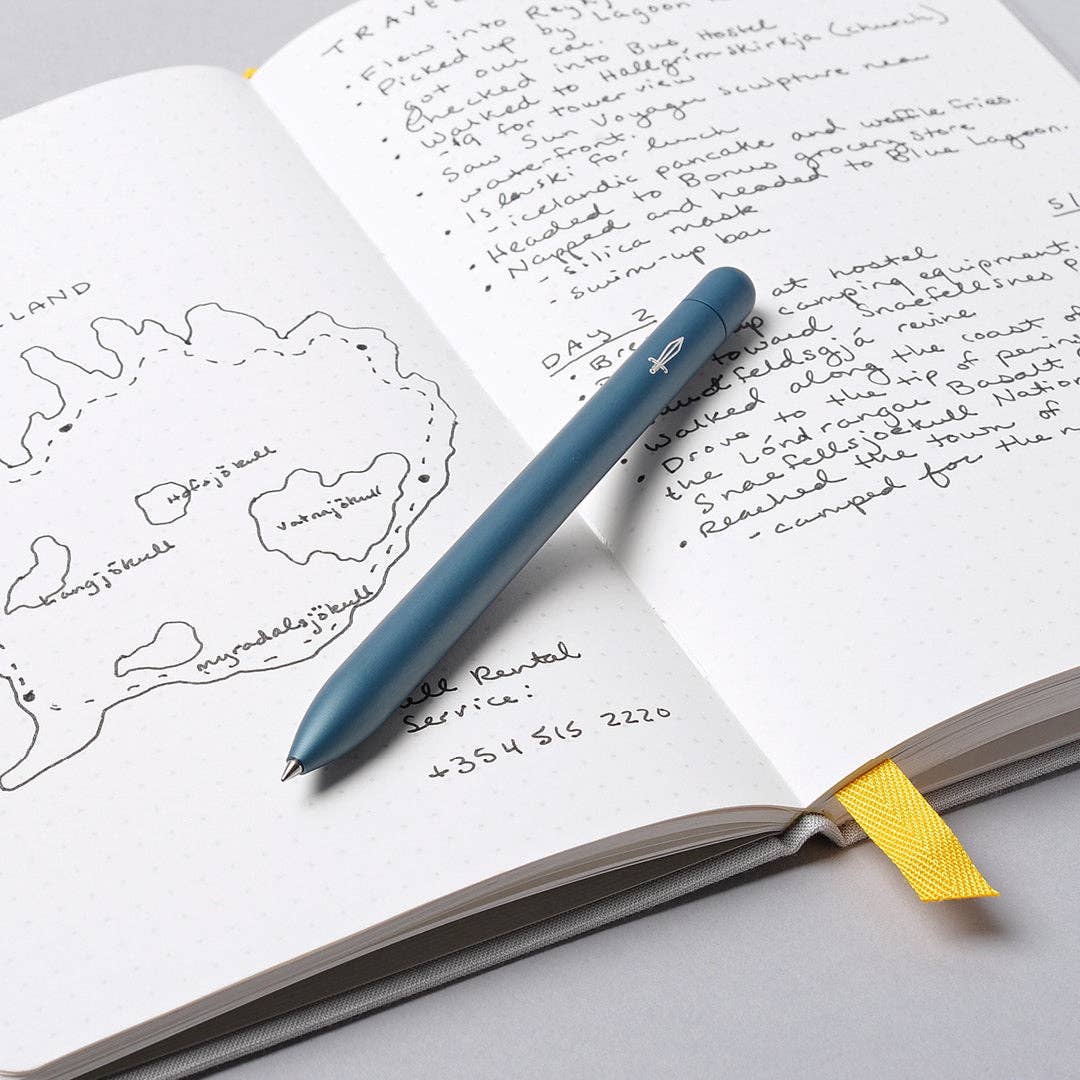 LAND
Hofsjökull
vatnajökull
Langjökull
myradalsjökull
Rental
Service:
+354 515 2220
TRAVEL
• Flew into Reykj
• Picked up by Lagoon
got our car.
• Checked into Bus Hostel
• Walked to Hallgrimskirkja (church)
-19 for tower view
• Saw Sun Voyager sculpture near
waterfront.
• Islenski for lunch
-icelandic pancake and waffle fries.
• Headed to Bonus grocery store
• Napped and headed to Blue Lagoon.
-silica mask
-swim-up bar
DAY 2
• Bre at hostel
up camping equipment.
toward Snaefellsnes p
feldsgjá revine
• Walked along the coast of
• Drove to the tip of penin
the Lóndrangar Basalt
Snaefellsjoekull Nation
• Reached the town of
- camped for the n